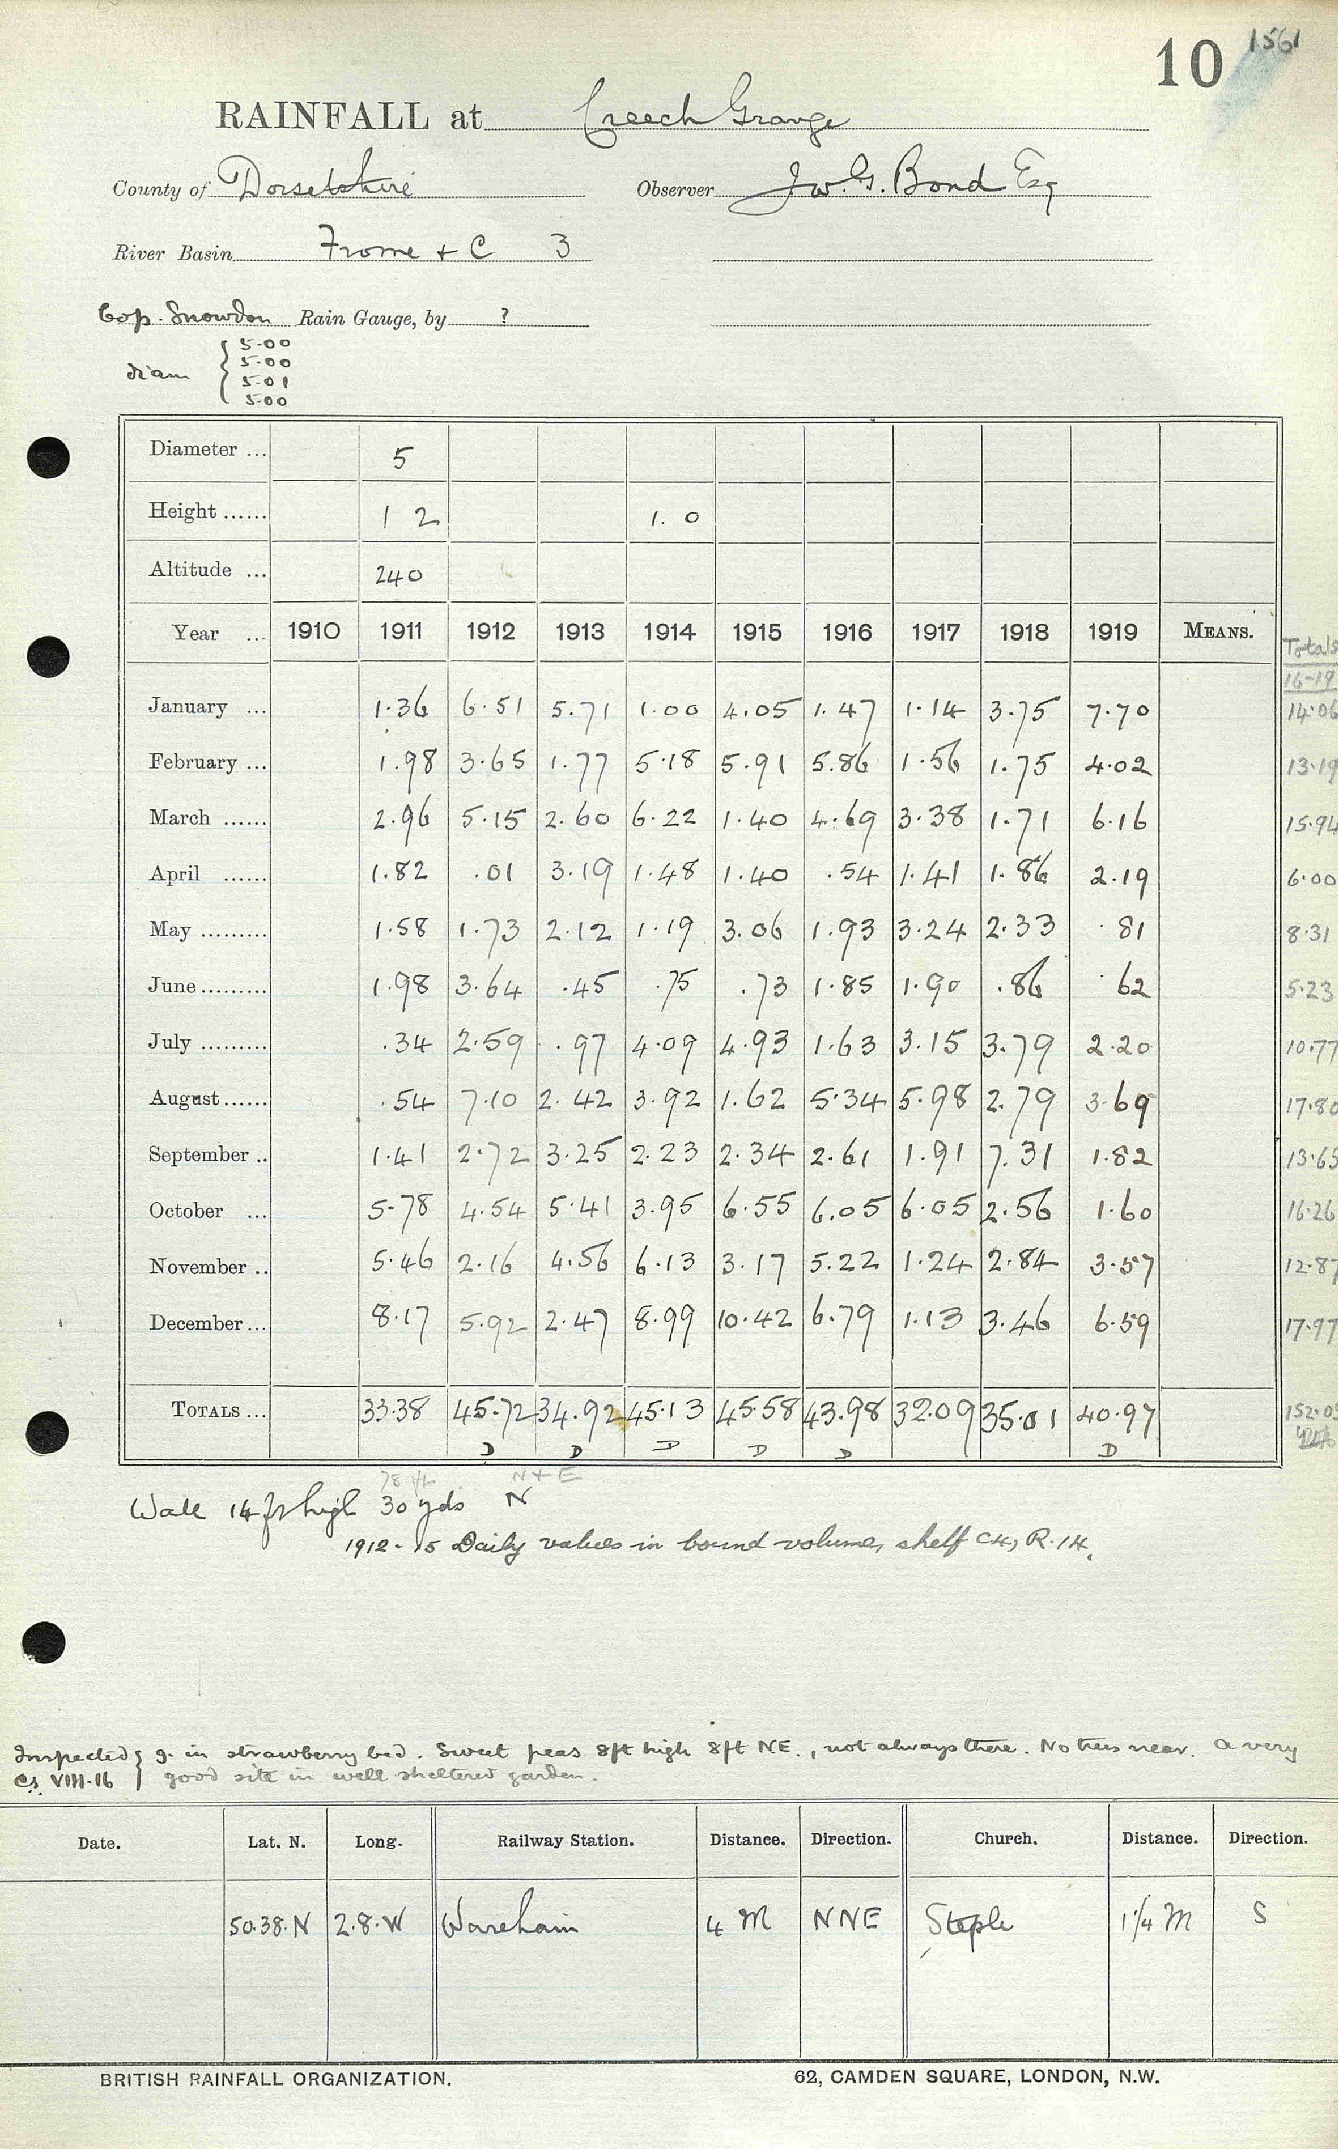 10 1561
RAINFALL at Creech Grange
County of Dorsetshire Observer J.W.G. Bond Esq
River Basin Frome + C 3
Cop. Snowdon Rain Gauge, by ?
diam { 5.00
5.00
5.01
5.00
Diameter ... 5
Height ...... 1 2 1. 0
Altitude ... 240
Year ... 1910 1911 1912 1913 1914 1915 1916 1917 1918 1919 MEANS. Totals
16-19
January ... 1.36 6.51 5.71 1.00 4.05 1.47 1.14 3.75 7.70 14.06
February ... 1.98 3.65 1.77 5.18 5.91 5.86 1.56 1.75 4.02 13.19
March ...... 2.96 5.15 2.60 6.22 1.40 4.69 3.38 1.71 6.16 15.94
April ...... 1.82 .01 3.19 1.48 1.40 .54 1.41 1.86 2.19 6.00
May ......... 1.58 1.73 2.12 1.19 3.06 1.93 3.24 2.33 .81 8.31
June ......... 1.98 3.64 .45 .75 .73 1.85 1.90 .86 .62 5.23
July ......... .34 2.59 .97 4.09 4.93 1.63 3.15 3.79 2.20 10.77
August ...... .54 7.10 2.42 3.92 1.62 5.34 5.98 2.79 3.69 17.80
September .. 1.41 2.72 3.25 2.23 2.34 2.61 1.91 7.31 1.82 13.65
October ... 5.78 4.54 5.41 3.95 6.55 6.05 6.05 2.56 1.60 16.26
November .. 5.46 2.16 4.56 6.13 3.17 5.22 1.24 2.84 3.57 12.87
December ... 8.17 5.92 2.47 8.99 10.42 6.79 1.13 3.46 6.59 17.97
TOTALS ... 33.38 45.72 34.92 45.13 45.58 43.98 32.09 35.01 40.97 152.05
D D D D D D
N + E
Wall 14 ft high 30 yds N
1912-15 Daily values in bound volume, shelf C4, R.14.
Inspected } g. in strawberry bed. Sweet peas 8ft high 8ft NE., not always there. No trees near. A very
Cs VIII-16 } good site in well sheltered garden.
Date. Lat. N. Long. Railway Station. Distance. Direction. Church. Distance. Direction.
50.38.N 2.8.W Wareham 4 M NNE Steple 1 1/4 M S
BRITISH RAINFALL ORGANIZATION. 62, CAMDEN SQUARE, LONDON, N.W.